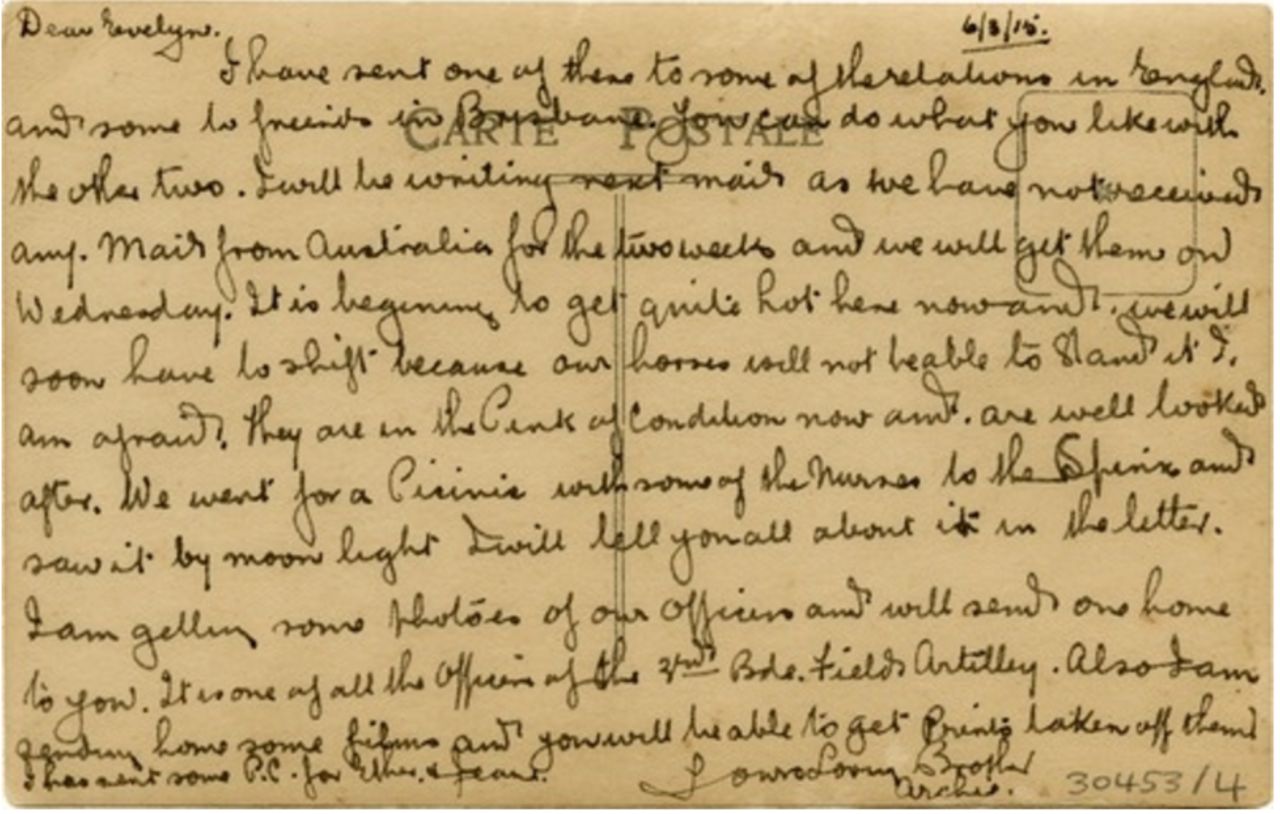 Dear Evelyn.
6/3/15.
I have sent one of these to some of the relations in England.
and some to friends in Brisbane. You can do what you like with
CARTE POSTALE
the other two. I will be writing next mail as we have not received
any. Mail from Australia for the two weeks and we will get them on
Wednesday. It is begining to get quite hot here now and. we will
soon have to shift because our horses will not be able to Stand it I.
am afraid. They are in the Pink of Condition now and. are well looked
after. We went for a Picinic with some of the Nurses to the Spinx and
saw it by moon light I will tell you all about it in the letter.
I am getting some photoes of our Officers and will send one home
to you. It is one of all the Officers of the Bde. Field Artilley. Also I am
sending home some films and you will be able to get Prints taken off them
I have sent some P.C. for & Jean.
Your Loving Brother
Archie.
30453/4